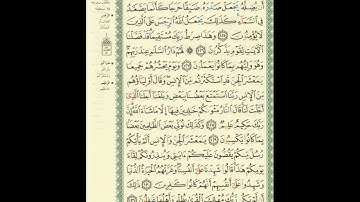 أَن يُضِلَّهُۥ يَجْعَلْ صَدْرَهُۥ ضَيِّقًا حَرَجًا كَأَنَّمَا يَصَّعَّدُ
فِى ٱلسَّمَآءِ كَذَٰلِكَ يَجْعَلُ ٱللَّهُ ٱلرِّجْسَ عَلَى ٱلَّذِينَ
لَا يُؤْمِنُونَ ١٢٥ وَهَٰذَا صِرَٰطُ رَبِّكَ مُسْتَقِيمًا قَدْ فَصَّلْنَا
ٱلْءَايَٰتِ لِقَوْمٍ يَذَّكَّرُونَ ١٢٦ لَهُمْ دَارُ ٱلسَّلَٰمِ عِندَ رَبِّهِمْ
وَهُوَ وَلِيُّهُم بِمَا كَانُوا۟ يَعْمَلُونَ ١٢٧ وَيَوْمَ يَحْشُرُهُمْ جَمِيعًا
يَٰمَعْشَرَ ٱلْجِنِّ قَدِ ٱسْتَكْثَرْتُم مِّنَ ٱلْإِنسِ وَقَالَ أَوْلِيَآؤُهُم
مِّنَ ٱلْإِنسِ رَبَّنَا ٱسْتَمْتَعَ بَعْضُنَا بِبَعْضٍ وَبَلَغْنَآ أَجَلَنَا ٱلَّذِىٓ
أَجَّلْتَ لَنَا قَالَ ٱلنَّارُ مَثْوَىٰكُمْ خَٰلِدِينَ فِيهَآ إِلَّا مَا شَآءَ ٱللَّهُ إِنَّ
رَبَّكَ حَكِيمٌ عَلِيمٌ ١٢٨ وَكَذَٰلِكَ نُوَلِّى بَعْضَ ٱلظَّٰلِمِينَ بَعْضًۢا
بِمَا كَانُوا۟ يَكْسِبُونَ ١٢٩ يَٰمَعْشَرَ ٱلْجِنِّ وَٱلْإِنسِ أَلَمْ يَأْتِكُمْ
رُسُلٌ مِّنكُمْ يَقُصُّونَ عَلَيْكُمْ ءَايَٰتِى وَيُنذِرُونَكُمْ لِقَآءَ
يَوْمِكُمْ هَٰذَا قَالُوا۟ شَهِدْنَا عَلَىٰٓ أَنفُسِنَا وَغَرَّتْهُمُ ٱلْحَيَوٰةُ ٱلدُّنْيَا
وَشَهِدُوا۟ عَلَىٰٓ أَنفُسِهِمْ أَنَّهُمْ كَانُوا۟ كَٰفِرِينَ ١٣٠ ذَٰلِكَ
أَن لَّمْ يَكُن رَّبُّكَ مُهْلِكَ ٱلْقُرَىٰ بِظُلْمٍ وَأَهْلُهَا غَٰفِلُونَ